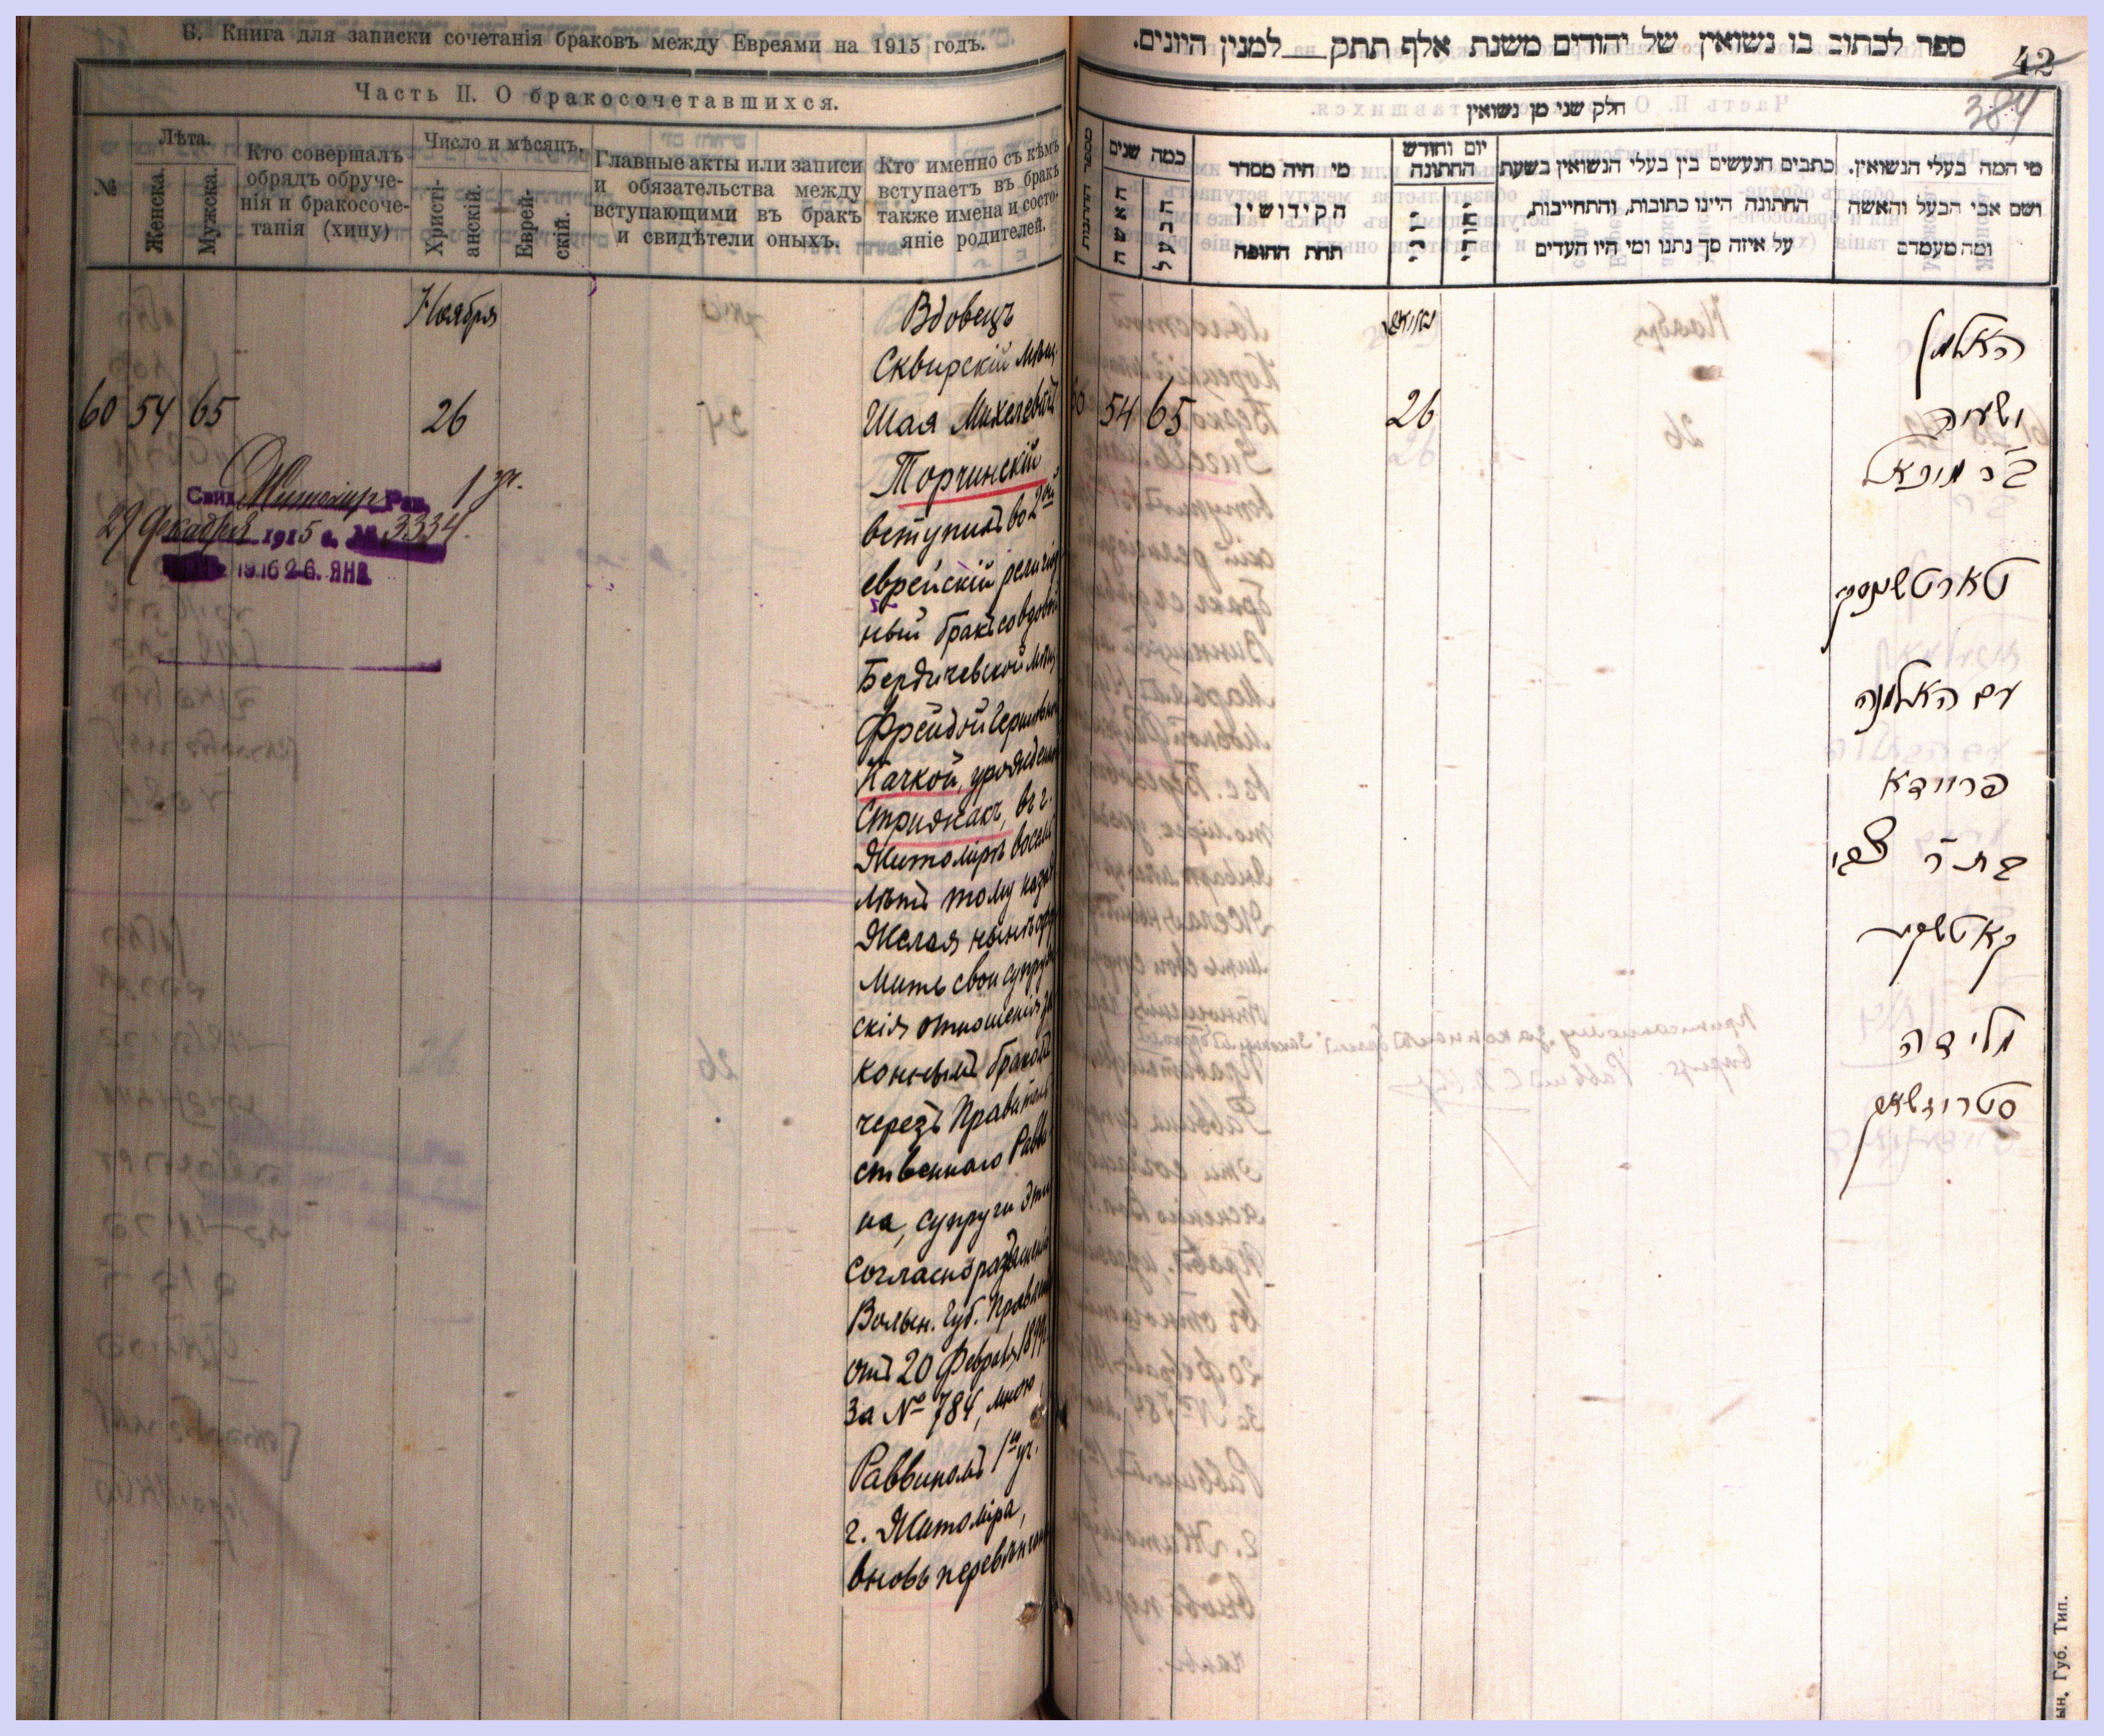 Б. Книга для записки сочетанія браковъ между Евреями на 1915 годъ.
Часть II. О бракосочетавшихся.
№
Лѣта.
Женска.
Мужска.
Кто совершалъ
обрядъ обруче-
нія и бракосоче-
танія (хипу)
Число и мѣсяцъ.
Христі-
анскій.
Еврей-
скій.
Главные акты или записи
и обязательства между
вступающими въ бракъ
и свидѣтели оныхъ.
Кто именно съ кѣмъ
вступаетъ въ бракъ
также имена и состо-
яніе родителей.
Ноября
60 54 65 26
Свид. Житомир. Рав. 1 уч.
29 Декабря 1915 г. № 3334.
1916 26. ЯНВ
Вдовецъ
Сквирскій мѣщ.
Шая Михелевъ
Торчинскій
вступилъ во 2ой
еврейскій религіоз
ный бракъ со вдовой
Бердичевской мѣщ.
Фрейдой Гершковной
Качкой, урожденной
Стрижакъ, въ г.
Житомірѣ восемь
лѣтъ тому назадъ
Желая нынѣ офор
мить свои супруже
скія отношенія за
коннымъ бракомъ
черезъ Правитель
ственнаго Равви
на, супруги эти
согласно разъясненію
Волын. Губ. Правленія
отъ 20 Февраля 1899 г.
за № 784, мною
Раввиномъ 1го уч.
г. Житоміра,
вновь перевѣнчаны
ספר לכתוב בו נשואין של יהודים משנת אלף תתק למנין היונים.
42
384
חלק שני מן נשואין
כמה שנים
האשה
הבעל
מי היה מסדר
הקידושין
תחת החופה
יום וחודש
החתונה
כתבים הנעשים בין בעלי הנשואין בשעת
החתונה היינו כתובות, והתחייבות,
על איזה סך נתנו ומי היו העדים
מי המה בעלי הנשואין.
ושם אבי הבעל והאשה
ומה מעמדם
54 65 26
האלמן
ישעיה
ב"ר מיכאל
טארטשינסקי
עם האלמנה
פריידא
בת ר' צבי
קאטשקע
מלידה
סטריזשאק
ын. Губ. Тип.